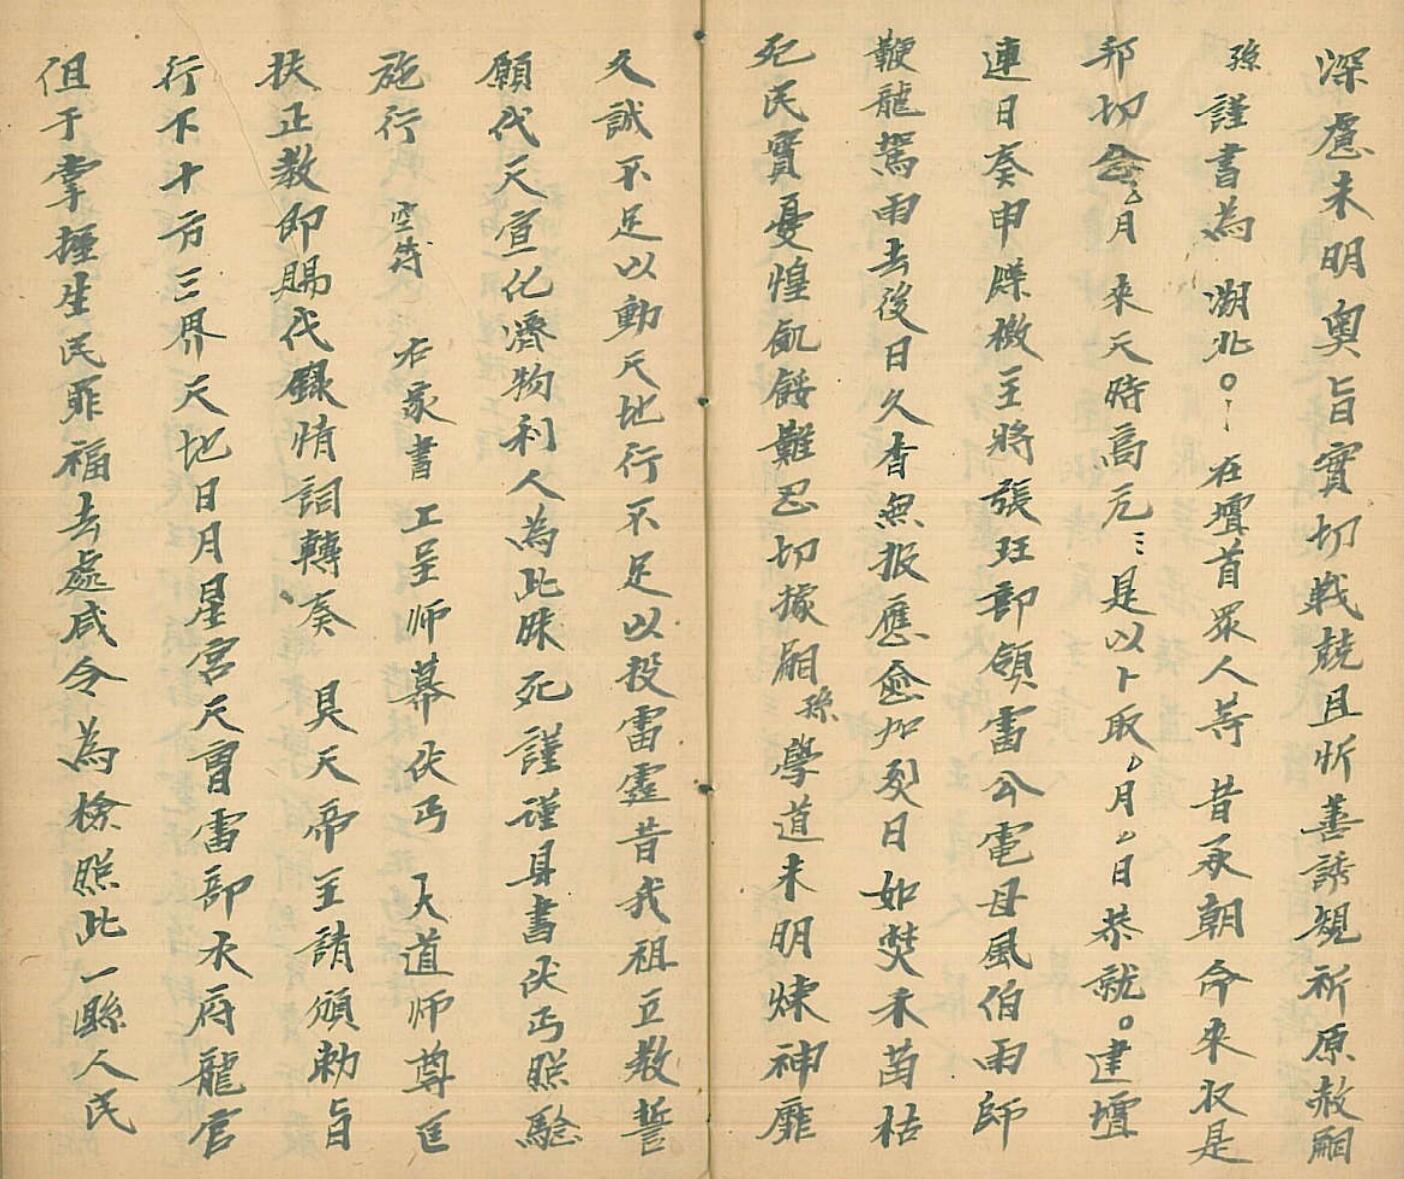 深慮未明奧旨實切戦兢且忻善誘規祈原赦嗣
孫謹書為湖北○在壇首眾人等昔承朝命來收是
邦切念月來天時高元是以卜取月日恭就○建壇
連日奏申牒檄主將張玨部領雷公電母風伯雨師
鞭龍駕雨去後日久杳無报應愈加烈日如焚禾苗枯
死民實憂惶飢餒難忍切據嗣孫學道未明煉神靡
久誠不足以動天地行不足以投雷霆昔我祖立教誓
願代天宣化濟物利人為此昧死謹謹具書伏丐照騐
施行 空符 右家書工呈师幕伏丐天道师尊匡
扶正教即賜代錄情詞轉奏昊天帝主請頒勅旨
行下十方三界天地日月星宮天曹雷部水府龍宮
但于掌握生民罪福去處咸令為檢照此一縣人民